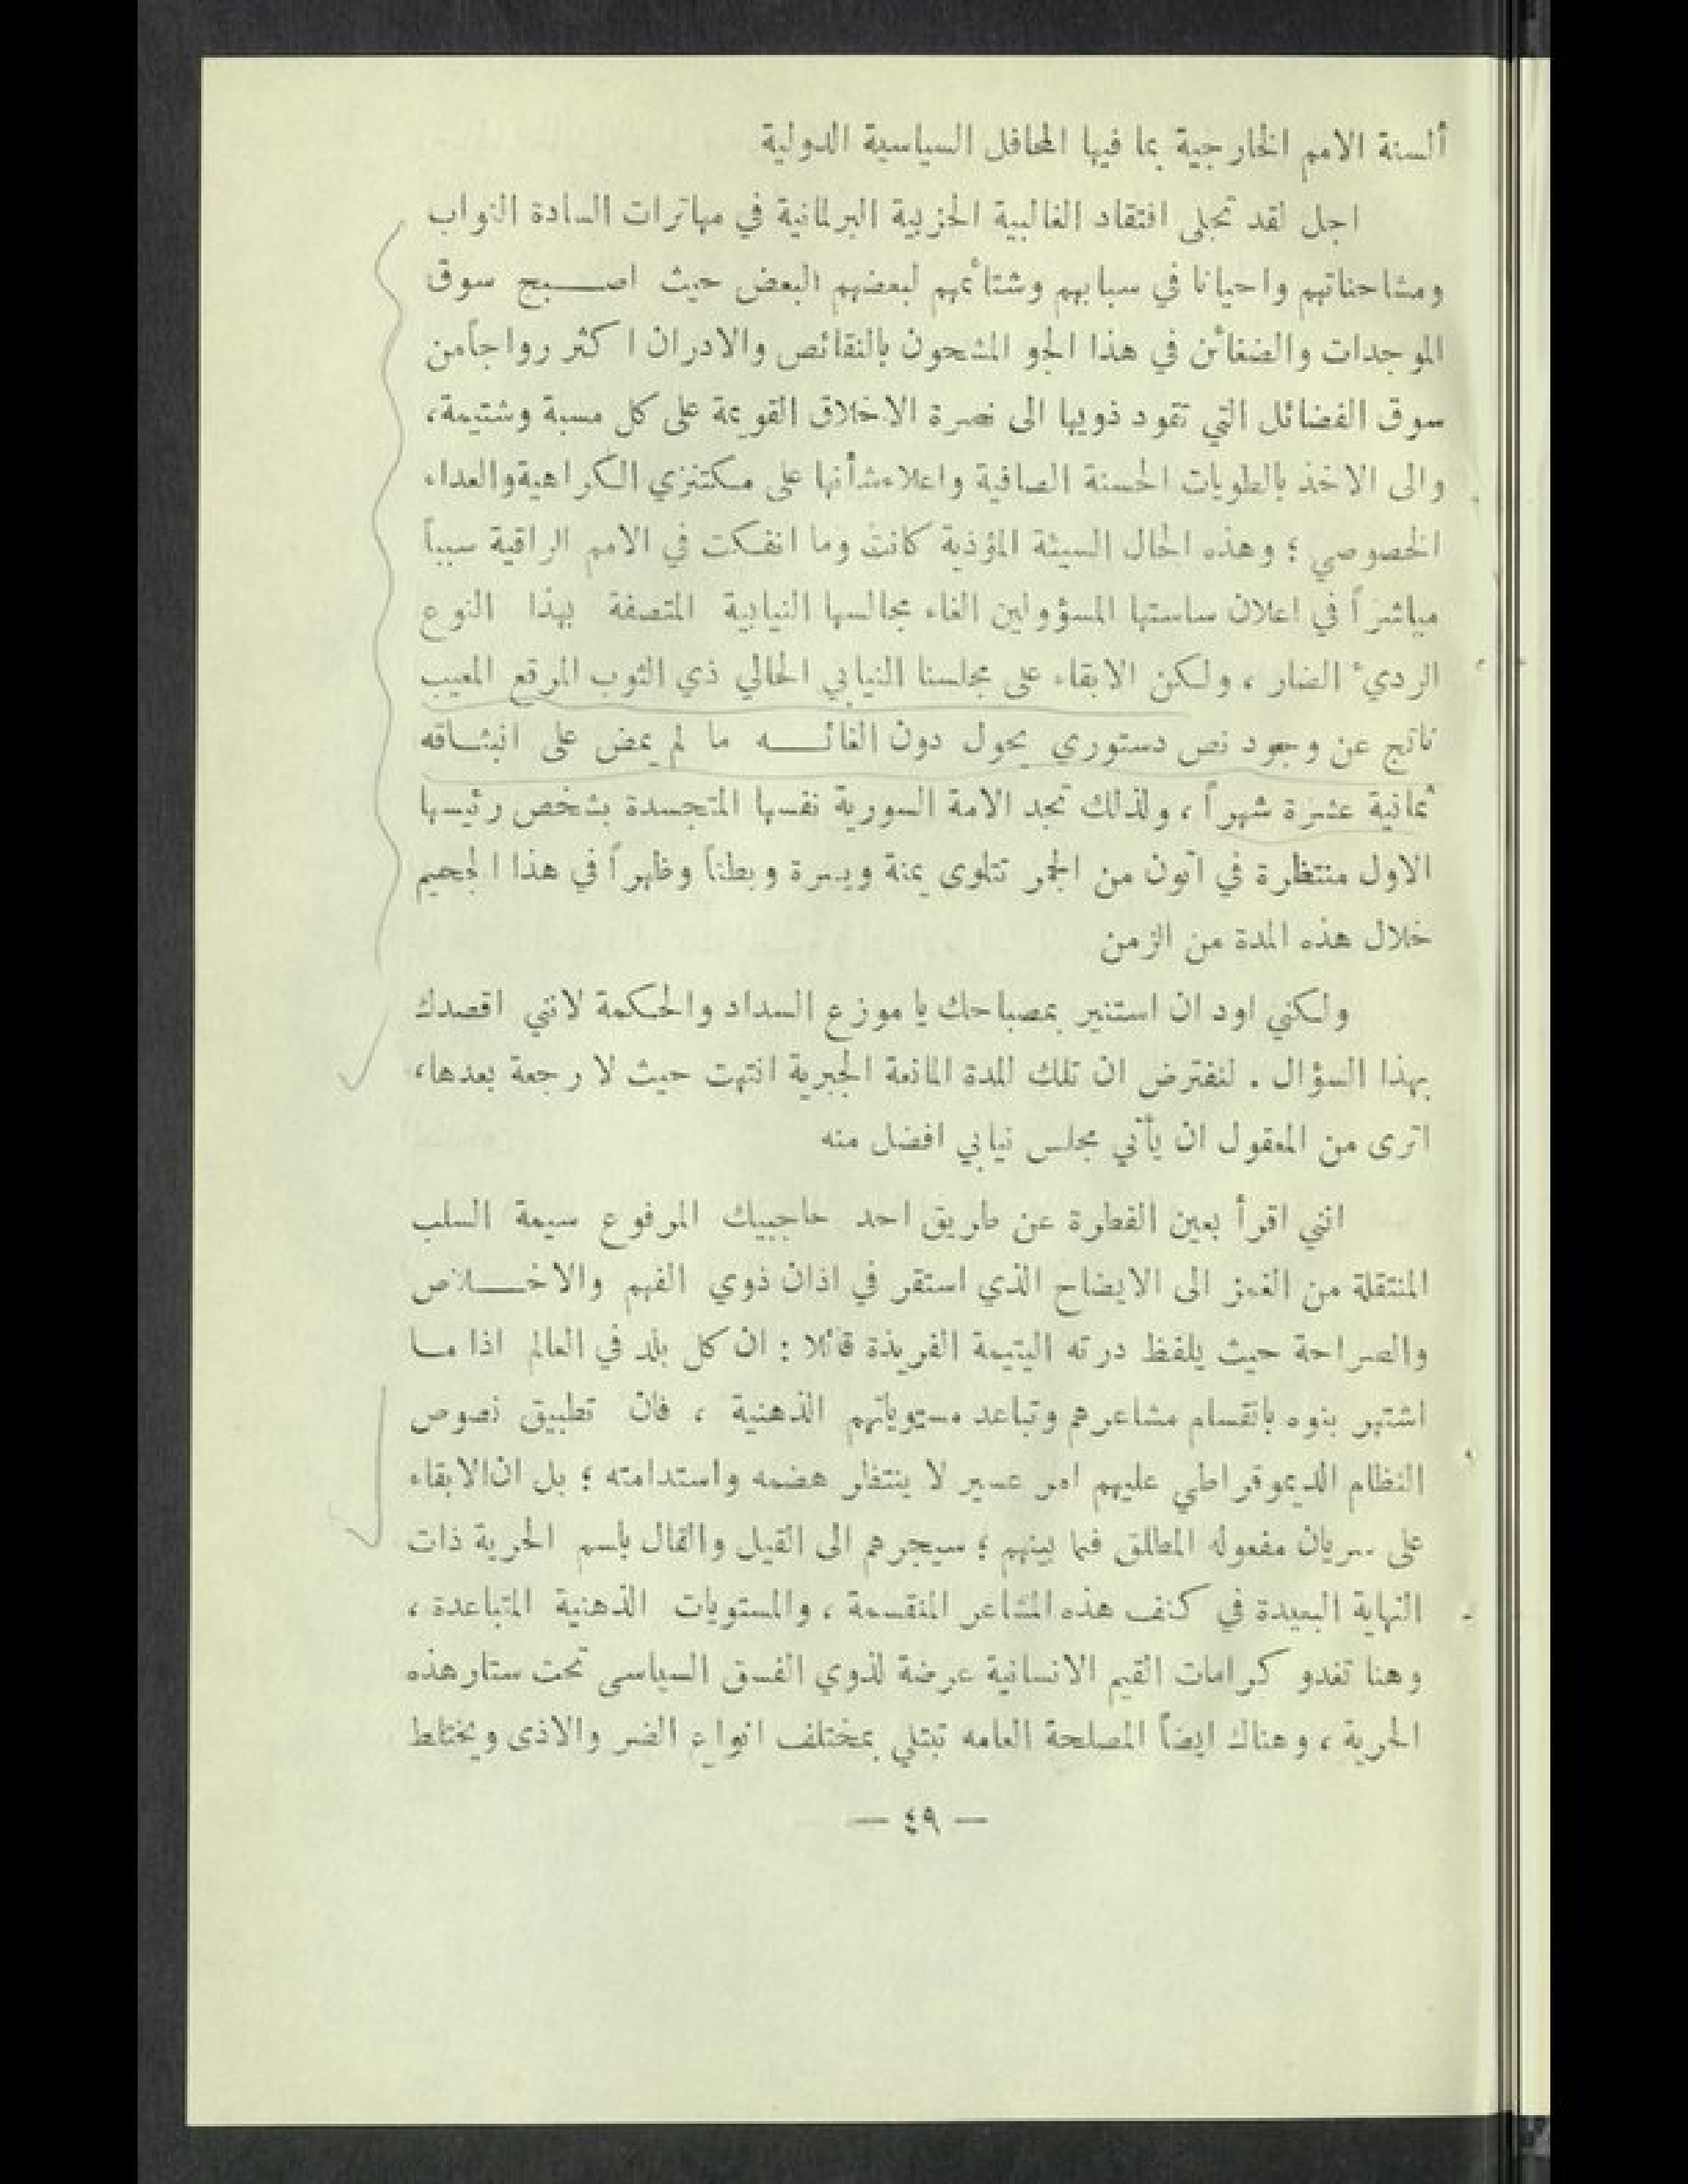 ألسنة الامم الخارجية بما فيها المحافل السياسية الدولية
اجل لقد تجلى افتقاد الغالبية الحزبية البرلمانية في مهاترات السادة النواب
ومشاحناتهم واحيانا في سبابهم وشتائمهم لبعضهم البعض حيث اصبح سوق
الموجدات والضغائن في هذا الجو المشحون بالنقائص والادران اكثر رواجاً من
سوق الفضائل التي تقود ذويها الى نصرة الاخلاق القويمة على كل مسبة وشتيمة،
والى الاخذ بالطويات الحسنة الصافية واعلاء شأنها على مكتنزي الكراهية والعداء
الخصوصي ؛ وهذه الحال السيئة المؤذية كانت وما انفكت في الامم الراقية سبباً
مباشراً في اعلان ساستها المسؤولين الغاء مجالسها النيابية المتصفة بهذا النوع
الرديء الضار ، ولكن الابقاء على مجلسنا النيابي الحالي ذي الثوب المرقع المعيب
ناتج عن وجود نص دستوري يحول دون الغائه ما لم يمض على انبثاقه
ثمانية عشرة شهراً ، ولذلك تجد الامة السورية نفسها المتجسدة بشخص رئيسها
الاول منتظرة في اتون من الجمر تتلوى يمنة ويسرة وبطناً وظهراً في هذا الجحيم
خلال هذه المدة من الزمن
ولكني اود ان استنير بمصباحك يا موزع السداد والحكمة لانني اقصدك
بهذا السؤال . لنفترض ان تلك المدة المانعة الجبرية انتهت حيث لا رجعة بعدها،
اترى من المعقول ان يأتي مجلس نيابي افضل منه
انني اقرأ بعين الفطرة عن طريق احد حاجبيك المرفوع سيمة السلب
المنتقلة من الغمز الى الايضاح الذي استقر في اذان ذوي الفهم والاخلاص
والصراحة حيث يلفظ درته اليتيمة الفريدة قائلا : ان كل بلد في العالم اذا ما
اشتهر بنوه بانقسام مشاعرهم وتباعد مستوياتهم الذهنية ، فان تطبيق نصوص
النظام الديموقراطي عليهم امر عسير لا ينتظر هضمه واستدامته ؛ بل ان الابقاء
على سريان مفعوله المطلق فيما بينهم ؛ سيجرهم الى القيل والقال باسم الحرية ذات
النهاية البعيدة في كنف هذه المشاعر المنقسمة ، والمستويات الذهنية المتباعدة ،
وهنا تغدو كرامات القيم الانسانية عرضة لذوي الفسق السياسى تحت ستار هذه
الحرية ، وهناك ايضاً المصلحة العامه تبتلي بمختلف انواع الضر والاذى ويختلط
— ٤٩ —